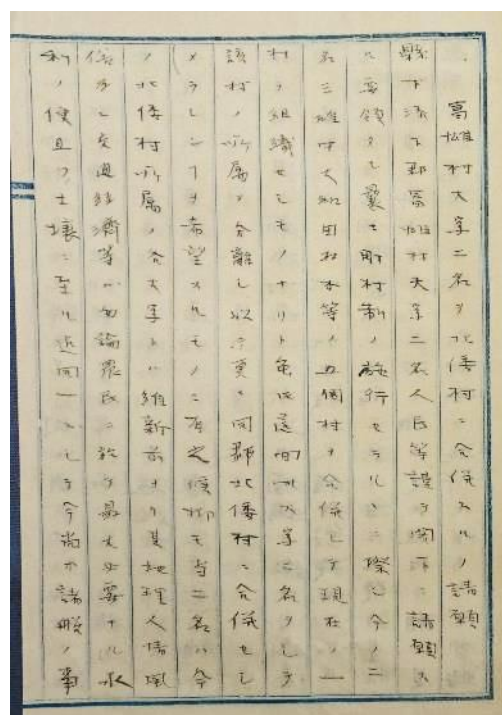 富雄村大字二名ヲ北倭村ニ合併スルノ請願
縣下添下郡富雄村大字二名人民等謹テ閣下ニ請願ス
ル要領タル曩キ町村制ノ施行セラルヽニ際シ今ノ二
名三碓中大和田村木等ノ五個村ヲ合併シテ現在ノ一
村ヲ組織セシモノナリト雖此這回吾大字二名ヲシテ
該村ノ所属ヲ分離シ以テ更ニ同郡北倭村ニ合併セシ
メラレンコヲ希望スルモノニ有之候抑モ吾二名ハ今
ノ北倭村所属ノ各大字トハ維新前ヨリ其地理人情風
俗ヨリ交通経済等ハ勿論農民ニ於テ最大必要ナル水
利ノ便且ツ土壌ニ至ル迄同一ニシテ今尚ホ諸般ノ事